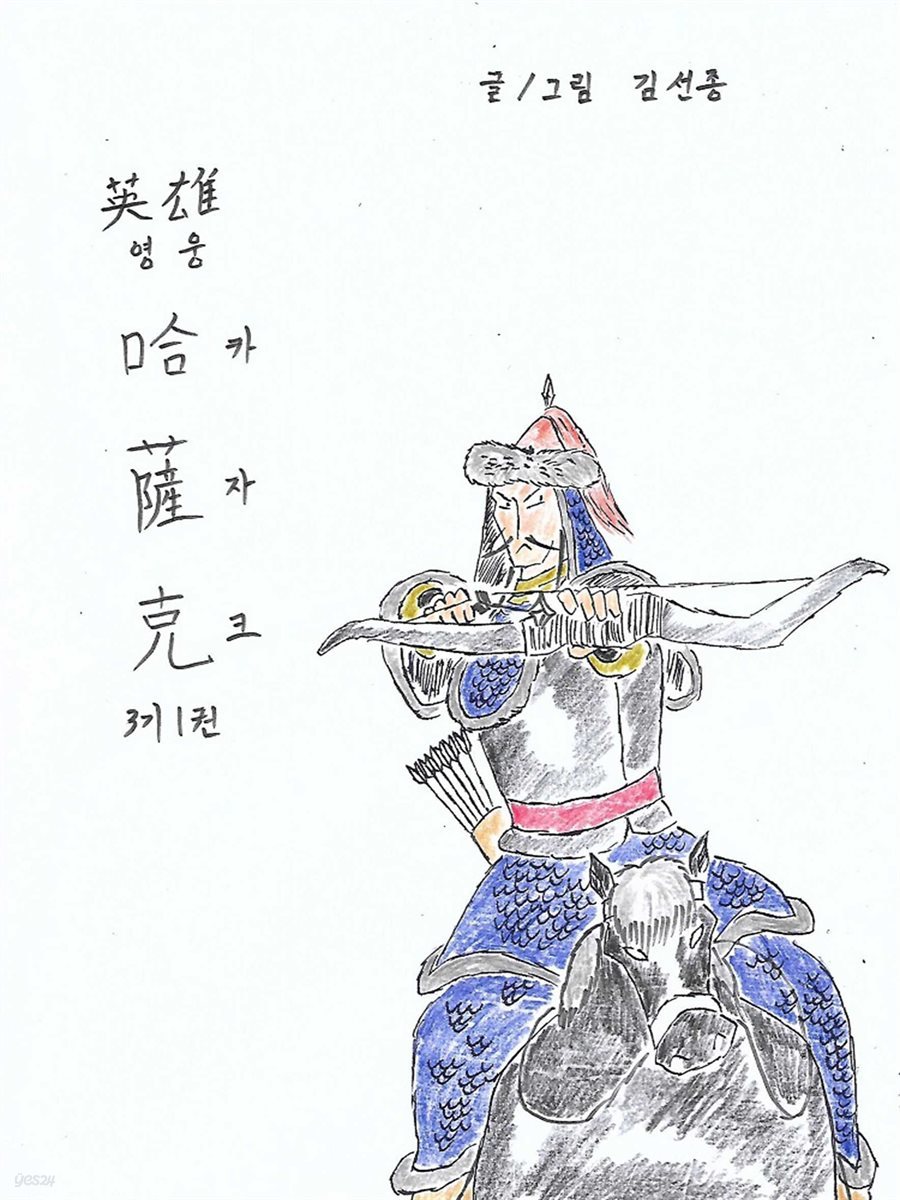 글/그림 김선종
英雄
영웅
哈 카
薩 자
克 크
3기 1권
yes24